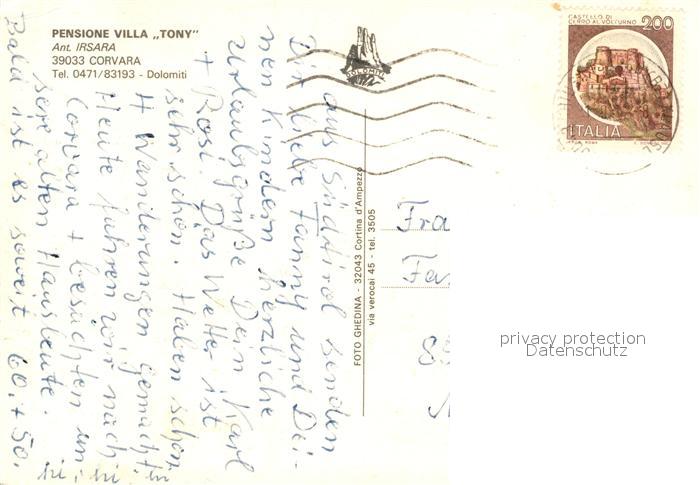 PENSIONE VILLA „TONY"
Ant. IRSARA
39033 CORVARA
Tel. 0471/83193 - Dolomiti
DOLOMITI
CASTELLO DI
CERRO AL VOLTURNO
200
ITALIA
FOTO GHEDINA - 32043 Cortina d'Ampezzo
via verocai 45 - tel. 3505
Aus Südtirol senden
Dir liebe Fanny und Dei-
nen Kindern herzliche
Urlaubsgrüße Dein Karl
+ Rosi. Das Wetter ist
sehr schön. Haben schon
4 Wanderungen gemacht.
Heute fuhren wir nach
Corvara + besuchten un-
sere alten Hausleute.
Bald ist es soweit 60. + 50.
Fra
Fa
8
privacy protection
Datenschutz